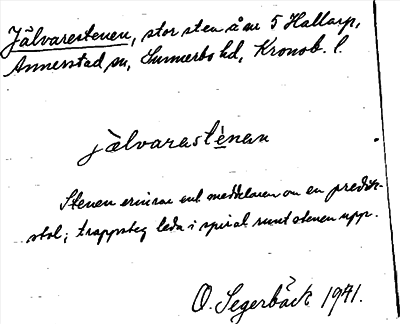 Jälvarestenen, stor sten å nr 5 Hallarp,
Annerstad sn, Sunnerbo hd, Kronob. l.
jälvarastènan
Stenen erinrar enl meddelaren om en predik-
stol; trappsteg leda i spiral runt stenen upp.
O. Segerbäck 1941.